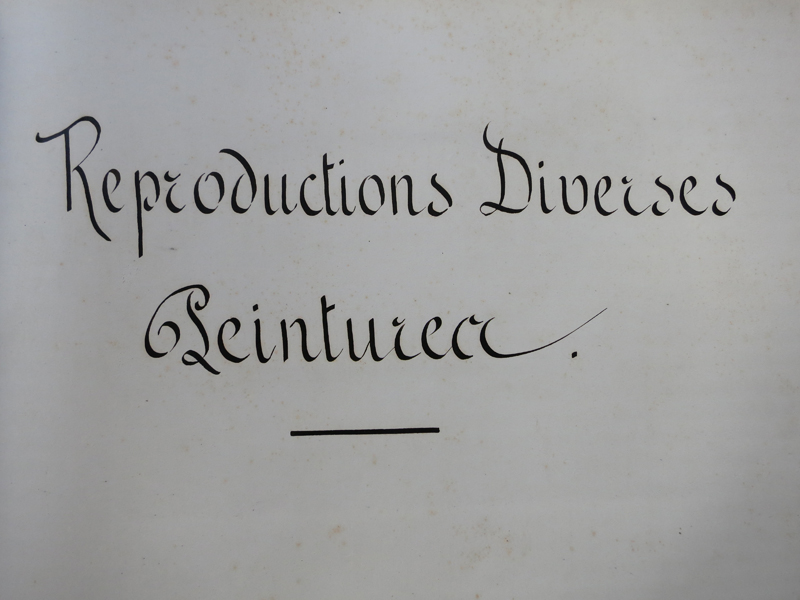 Reproductions Diverses
Peintures.